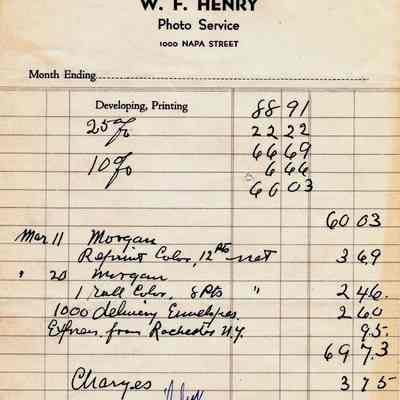 W. F. HENRY
Photo Service
1000 NAPA STREET
Month Ending
Developing, Printing 88 91
25% 22 22
66 69
10% 6 66
60 03
60 03
Mar 11 Morgan
Reprint Color, 12 Pts net 3 69
" 20 Morgan
1 roll Color, 8 Pts " 2 46.
1000 delivery Envelopes. 2 60
Express. from Rochester N.Y. 95.
69 73
Charges 3 75